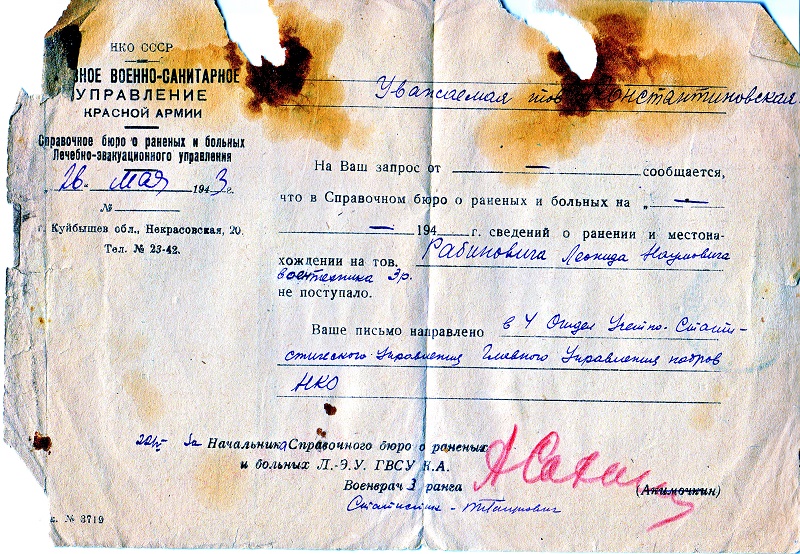 НКО СССР
НОЕ ВОЕННО-САНИТАРНОЕ
УПРАВЛЕНИЕ
КРАСНОЙ АРМИИ
Справочное бюро о раненых и больных
Лечебно-эвакуационного управления
„26“ мая 1943г.
№
г. Куйбышев обл., Некрасовская, 20.
Тел. № 23-42.
Уважаемая тов. Константиновская
На Ваш запрос от — сообщается,
что в Справочном бюро о раненых и больных на „—
— 194 г. сведений о ранении и местона-
хождении на тов. Рабиновича Леонида Наумовича
воентехника 3 р.
не поступало.
Ваше письмо направлено в 4 Отдел Учетно-Стати-
стического Управления Главного Управления кадров
НКО
За Начальника Справочного бюро о раненых
и больных Л.-Э.У. ГВСУ К.А.
Военврач 3 ранга (Акимочкин)
Статистик -
к. № 3719